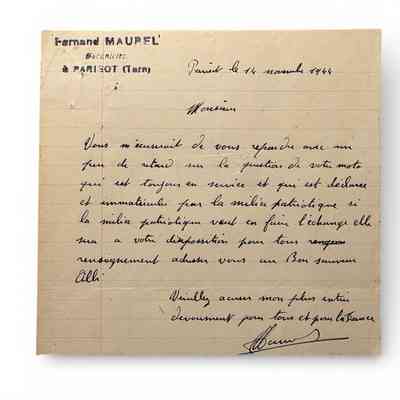 Fernand MAUREL
Mécanicien
à PARISOT (Tarn)
Parisot le 14 novembre 1944
à
Monsieur
Vous m'excuserait de vous repondre avec un
peu de retard sur la question de votre moto
qui est toujours en service et qui est déclarée
et immatriculée par la milice patriotique si
la milice patriotique veut en faire l'échange elle
sera a votre disposition pour tous
renseignement adresser vous au Bon sauveur
Albi
Veuillez mon plus entier
devouement pour tous et pour la France